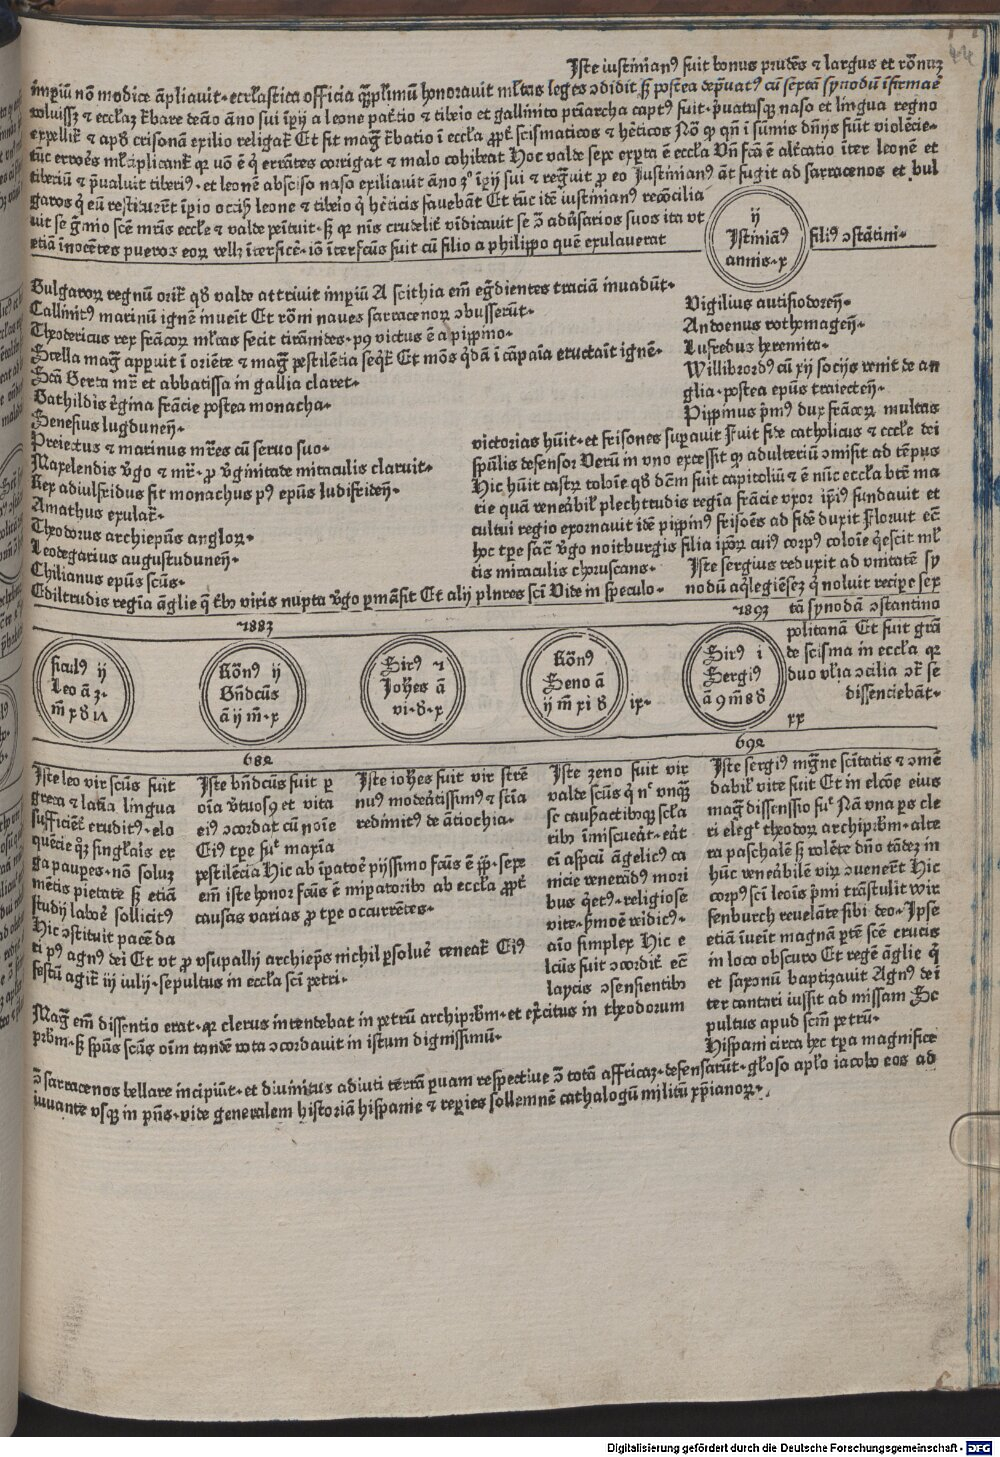 44
Iste iustinianꝰ fuit bonus prudēs ⁊ largus et rōnuꝫ
īmpiū nō modice āpliauit · eccłastica officia honorauit młtas leges ↄdidit sꝫ postea deprauatꝰ cū sextā synodū īfirmaē
voluissꝫ ⁊ eccłaꝫ ťbare deāo āno sui īpij a leone et tibeio et gallinito ptriarcha captꝰ fuit · puatusqꝫ naso et lingua regno
expellit ⁊ apd crisonā exilio religat Et fit mag ťbatio ī eccła ꝓpt scismaticos ⁊ heticos Nō qn ī sumis dn̄ijs fiūt violēcie ·
tūc erroēs mťiplicant qꝛ errātes corrigat ⁊ malo cohibeat Hoc valde sepe expta ē eccła Vn̄ fcā ē altcatio īter leonē et
tiberiū ⁊ pualuit tiberiꝰ · et leonē absciso naso exiliauit āno īpij sui ⁊ regauit ꝓ eo Iustinianꝰ āt fugit ad sarracenos et bul
garos q̇ eū restituert īpio occisis leone ⁊ tibeio q̇ heticis fauebāt Et tūc idē iustinianꝰ recōcilia
uit se gmio scē mris eccłe ⁊ valde peituit · sꝫ qꝛ nis crudelit vīdicauit se ↄ adusarios suos ita vt
etiā inocētes pueros eoꝛ vellꝫ īterficē · iō īterfcūs fuit cū filio a philippo quē exulauerat
ij
Iſtiniāꝰ
annis · x
filiꝰ ↄstātini ·
Bulgaroꝝ regnū orit qd valde attriuit impiū A scithia em̄ egdientes traciā inuadūt ·
Callinitꝰ marinū ignē inueit Et rōni naues sarracenoꝝ ↄbusserūt ·
Theodericus rex frācoꝝ młtas fecit tirānides · pꝰ victus ē a pippino ·
Stella mag appuit ī oriēte ⁊ mag pestilētia seqt Et mōs qdā ī cāpaia eructait ignē ·
Scā Berta mr et abbatissa in gallia claret ·
Bathildis rgina frācie postea monacha ·
Genesius lugdunen̄ ·
Preiectus ⁊ marinus mres cū seruo suo ·
Maxelendis vgo ⁊ mr · ꝓ vginitate miraculis claruit ·
Rex adiulfridus fit monachus pꝰ epūs ludisfriden̄ ·
Amathus exulat ·
Theodorus archiepūs angloꝝ ·
Leodegarius augustudunen̄ ·
Chilianus epūs scūs ·
Ediltrudis regīa āglie q̄ tbꝰ viris nupta vgo pmāsit Et alij plures sci Vide in speculo ·
Vigilius autisiodoren̄ ·
Andoenus rothomagen̄ ·
Lufredus heremita ·
Willibrordꝰ cū xij socijs venit de an
glia · postea epūs traiecten̄ ·
Pippinus pmꝰ dux frācoꝝ multas
victorias hūit · et frisones supauit Fuit fide catholicus ⁊ eccłe dei
spūlis defensor Verū in vno excessit qꝛ adulteriū ↄmisit ad tēpus
Hic hūit castꝝ tobōie qd dcm̄ fuit capitoliū ⁊ ē nūc eccła btē ma
rie quā veneabił plechtrudis regīa frācie vxor ipiꝰ fundauit et
cultui regio exornauit idē pippinꝰ frisoēs ad fidē duxit Floruit ec̄
hoc tpe sac vgo noitburgis filia ipoꝝ cuiꝰ corpꝰ coloīe q̇escit mł
tis miraculis choruscans ·
Iste sergius reduxit ad vnitatē sy
nodū aqlegiēseꝫ q̇ noluit recipe sex
tā synodā ↄstantino
politanā Et fuit grā
de scisma in eccła qꝛ
duo vlia ↄcilia ↄt se
dissenciebāt ·
1883
1893
siculꝰ ij
Leo ā ꝫ ·
m̄ x d iʌ
Rōnꝰ ij
Bn̄dcūs
ā ij m̄ · x
Sirꝰ ⁊
Johēs ā
vi · d · x
Rōnꝰ
Seno ā
ij m̄ xi d
ix ·
Sirꝰ i
Sergiꝰ
ā 9 m̄ 8 d
xx
682
692
Iste leo vir scūs fuit
greca ⁊ latīa lingua
sufficiēt eruditꝰ · elo
quēcie qꝫ singłaris er
ga paupes · nō soluꝫ
mētis pietate sꝫ etiā
studij laboē sollicitꝰ
Hic ↄstituit pacē da
ri pꝰ agnꝰ dei Et vt ꝓ vsupallij archiepūs nichil psoluē teneat Eiꝰ
festū agit iij iulij · sepultus in eccła sci petri ·
Iste bn̄dcūs fuit p
oīa vtuosꝰ et vita
eiꝰ ↄcordat cū noīe
Eiꝰ tpe fut maxīa
pestilēcia Hic ab īpatoē pijssimo fcūs ē · sepe
em̄ iste honor fcūs ē mipatoribꝰ ab eccła ꝓpt
causas varias ꝓ tpe occurrētes ·
Iste iohēs fuit vir strē
nuꝰ modeātissimꝰ ⁊ sciā
redimitꝰ de ātiochia ·
Iste zeno fuit vir
valde scūs q̇ nc vnqꝫ
se caupactibꝰqꝫ scła
ribꝰ īmiscueāt · eāt
ei aspcū āgelicꝰ ca
nicie venerādꝰ mori
bus q̇etꝰ · religiose
vite · pmoē veidicꝰ ·
aīo simplex Hic e
lcūs fuit ↄcordit ec̄
laycis ↄsensientibꝰ
Iste sergiꝰ mgne scītatis ⁊ ↄmē
dabił vite fuit Et in elcōe eius
mag dissenssio fut Nā vna ps cle
ri elegt theodoꝝ archiprbm̄ · alte
ra paschalē sꝫ volēte dn̄o tādeꝫ in
hūc veneābilē viꝝ ↄuenerūt Hic
corpꝰ sci leoīs pmi trāstulit wir
senburch reuelāte sibi deo · Ipse
etiā īueit magnā ptē scē crucis
in loco obscuro Et regē āglie q̇
et saxonū baptizauit Agnꝰ dei
ter cantari iussit ad missam Se
pultus apud scm̄ petrū ·
Mag em̄ dissentio erat · qꝛ clerus intendebat in petrū archiprbm̄ · et excitus in theodorum
prbm̄ · sꝫ spūs scūs oim tandē vota ↄcordauit in istum dignissimū ·
Hispani circa hec tpa magnifice
ↄ sarracenos bellare incipiūt · et diuinitus adiuti terrā puam respectiue ↄ totā affricaꝫ · defensarūt · głoso apło iacobo eos ad
iuuante vsqꝫ in pn̄s · vide generalem historiā hispanie ⁊ repies sollemnē cathalogū militū xpianoꝝ ·
Digitalisierung gefördert durch die Deutsche Forschungsgemeinschaft - DFG